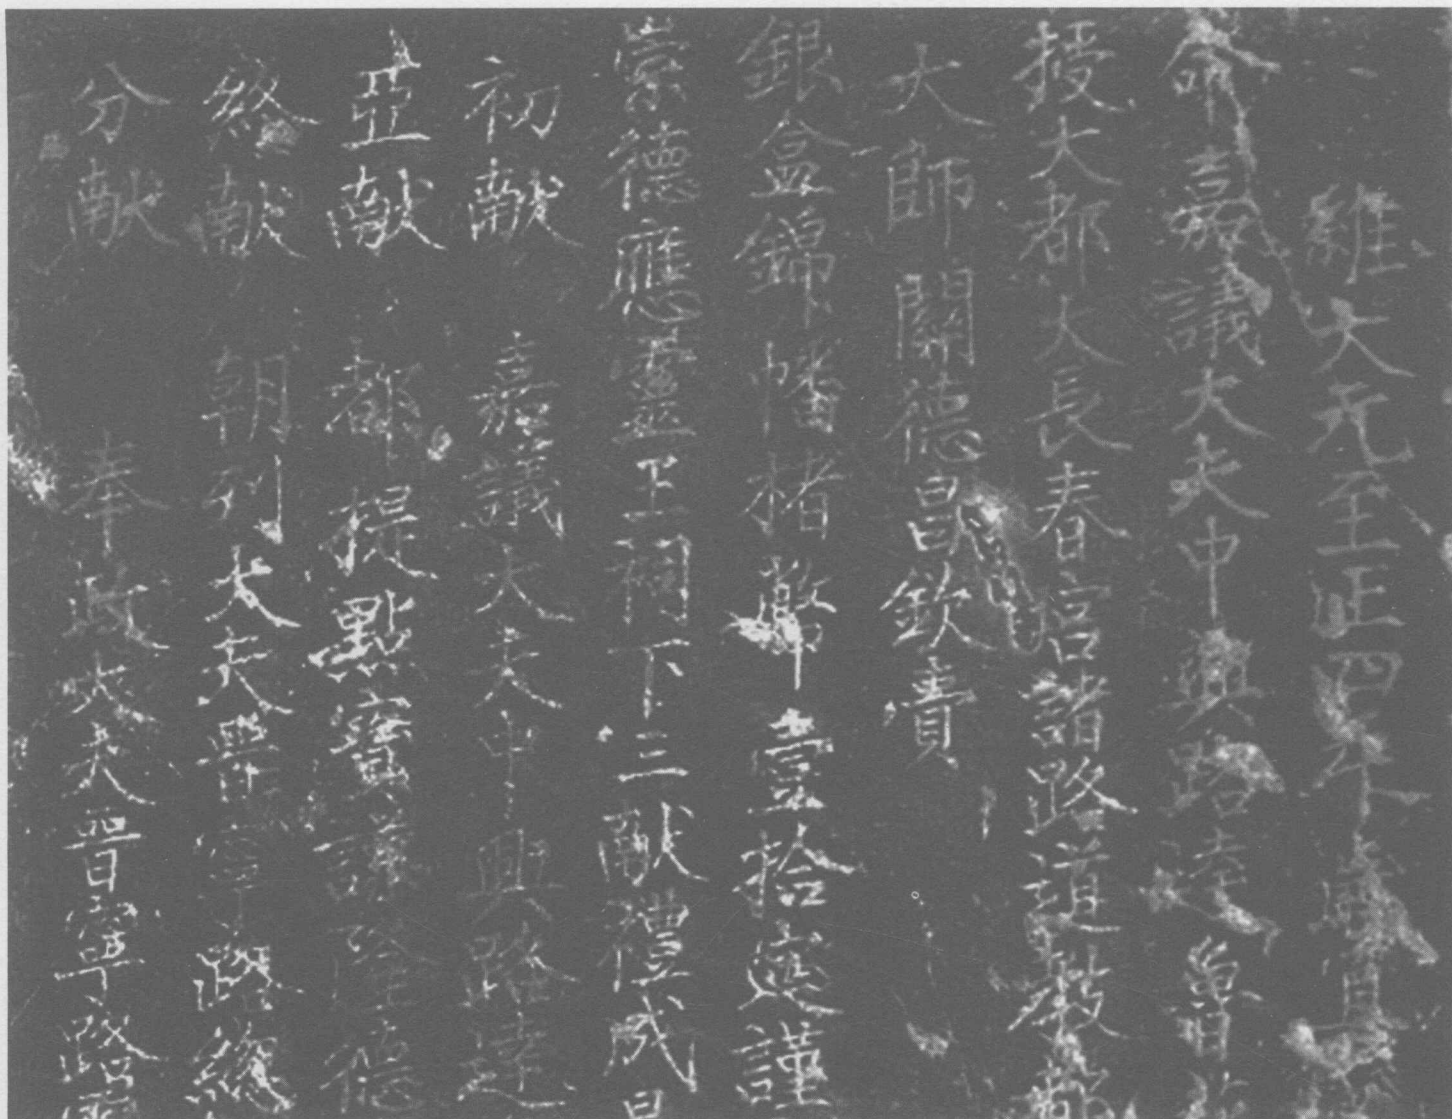 維大元至正四年
命嘉議大夫中興路達魯
授大都大長春宮諸路道教都
大師關德昌欽賫
銀盒錦幡楮幣壹拾定謹
崇德應靈王祠下三獻禮成
初獻 嘉議大夫中興路達
亞獻 都提點寶謙 德
終獻 朝列大夫晋寧路總
分獻 奉政大夫晋寧路